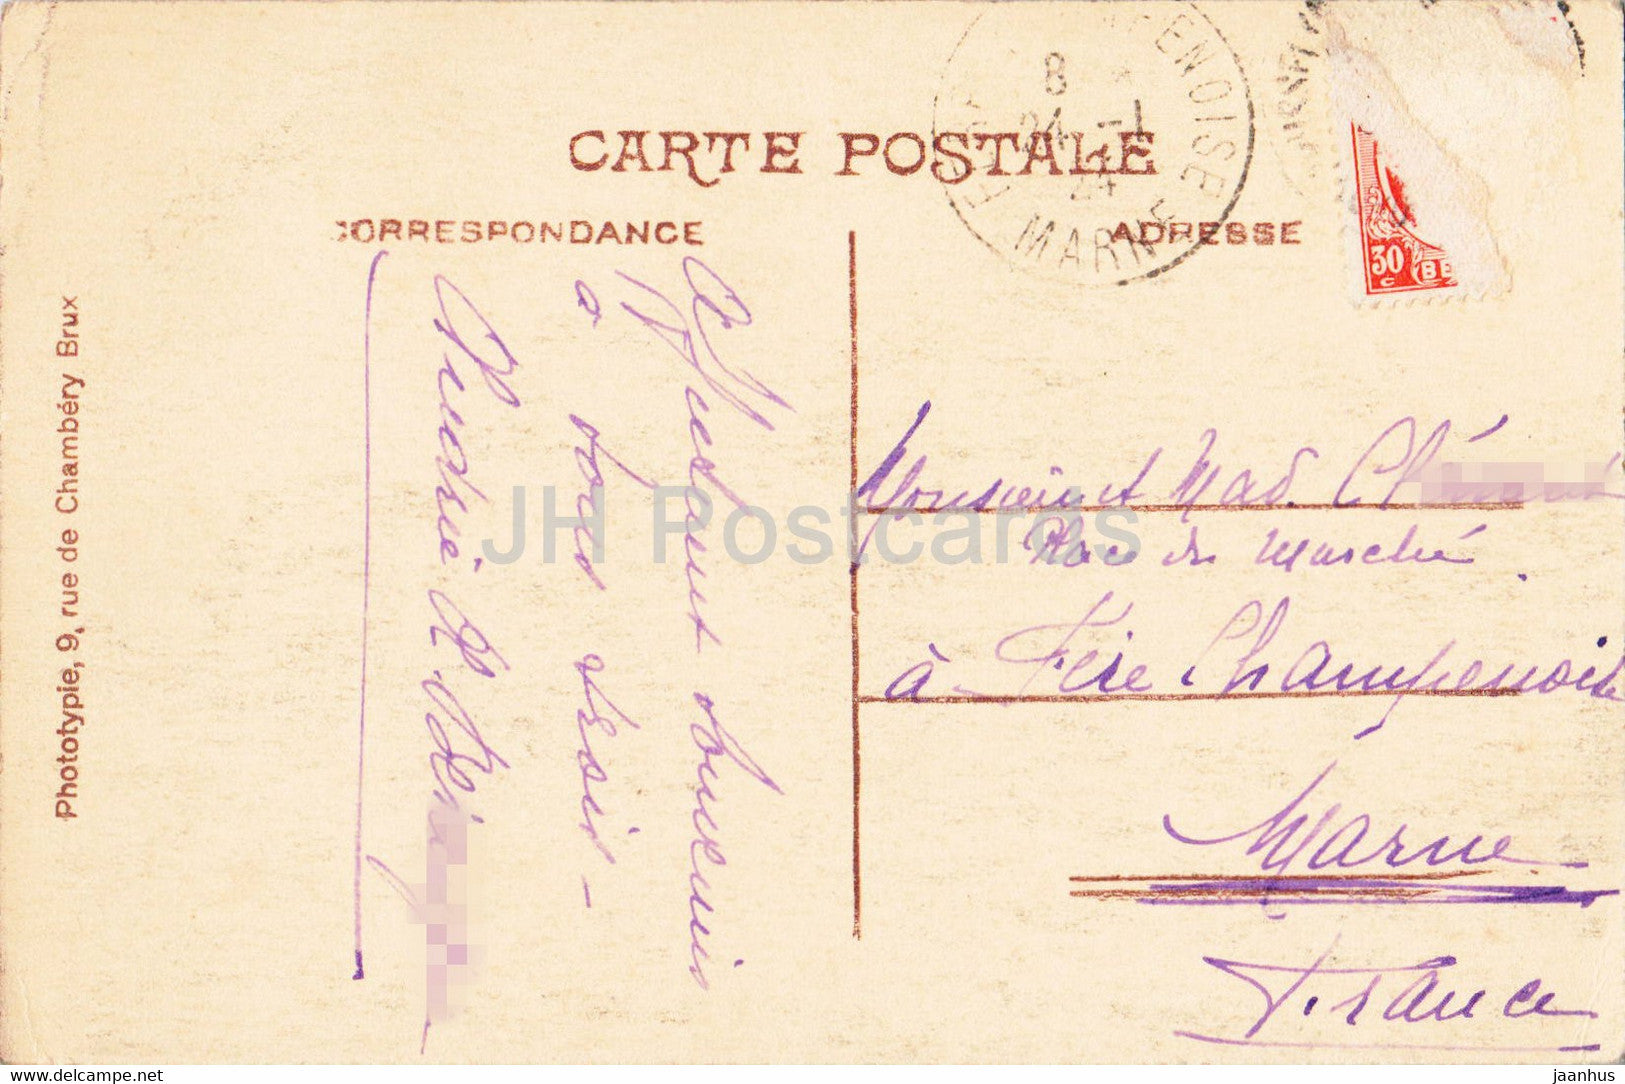 CARTE POSTALE
CORRESPONDANCE
ADRESSE
Phototypie, 9, rue de Chambéry Brux
Affectueux souvenir
à vous deux -
MARNE
8
24 -1
30
c
BE
Monsieur et Mad.
Place du Marché
à Fère Champenoise
Marne
France
JH Postcards
www.delcampe.net
jaanhus